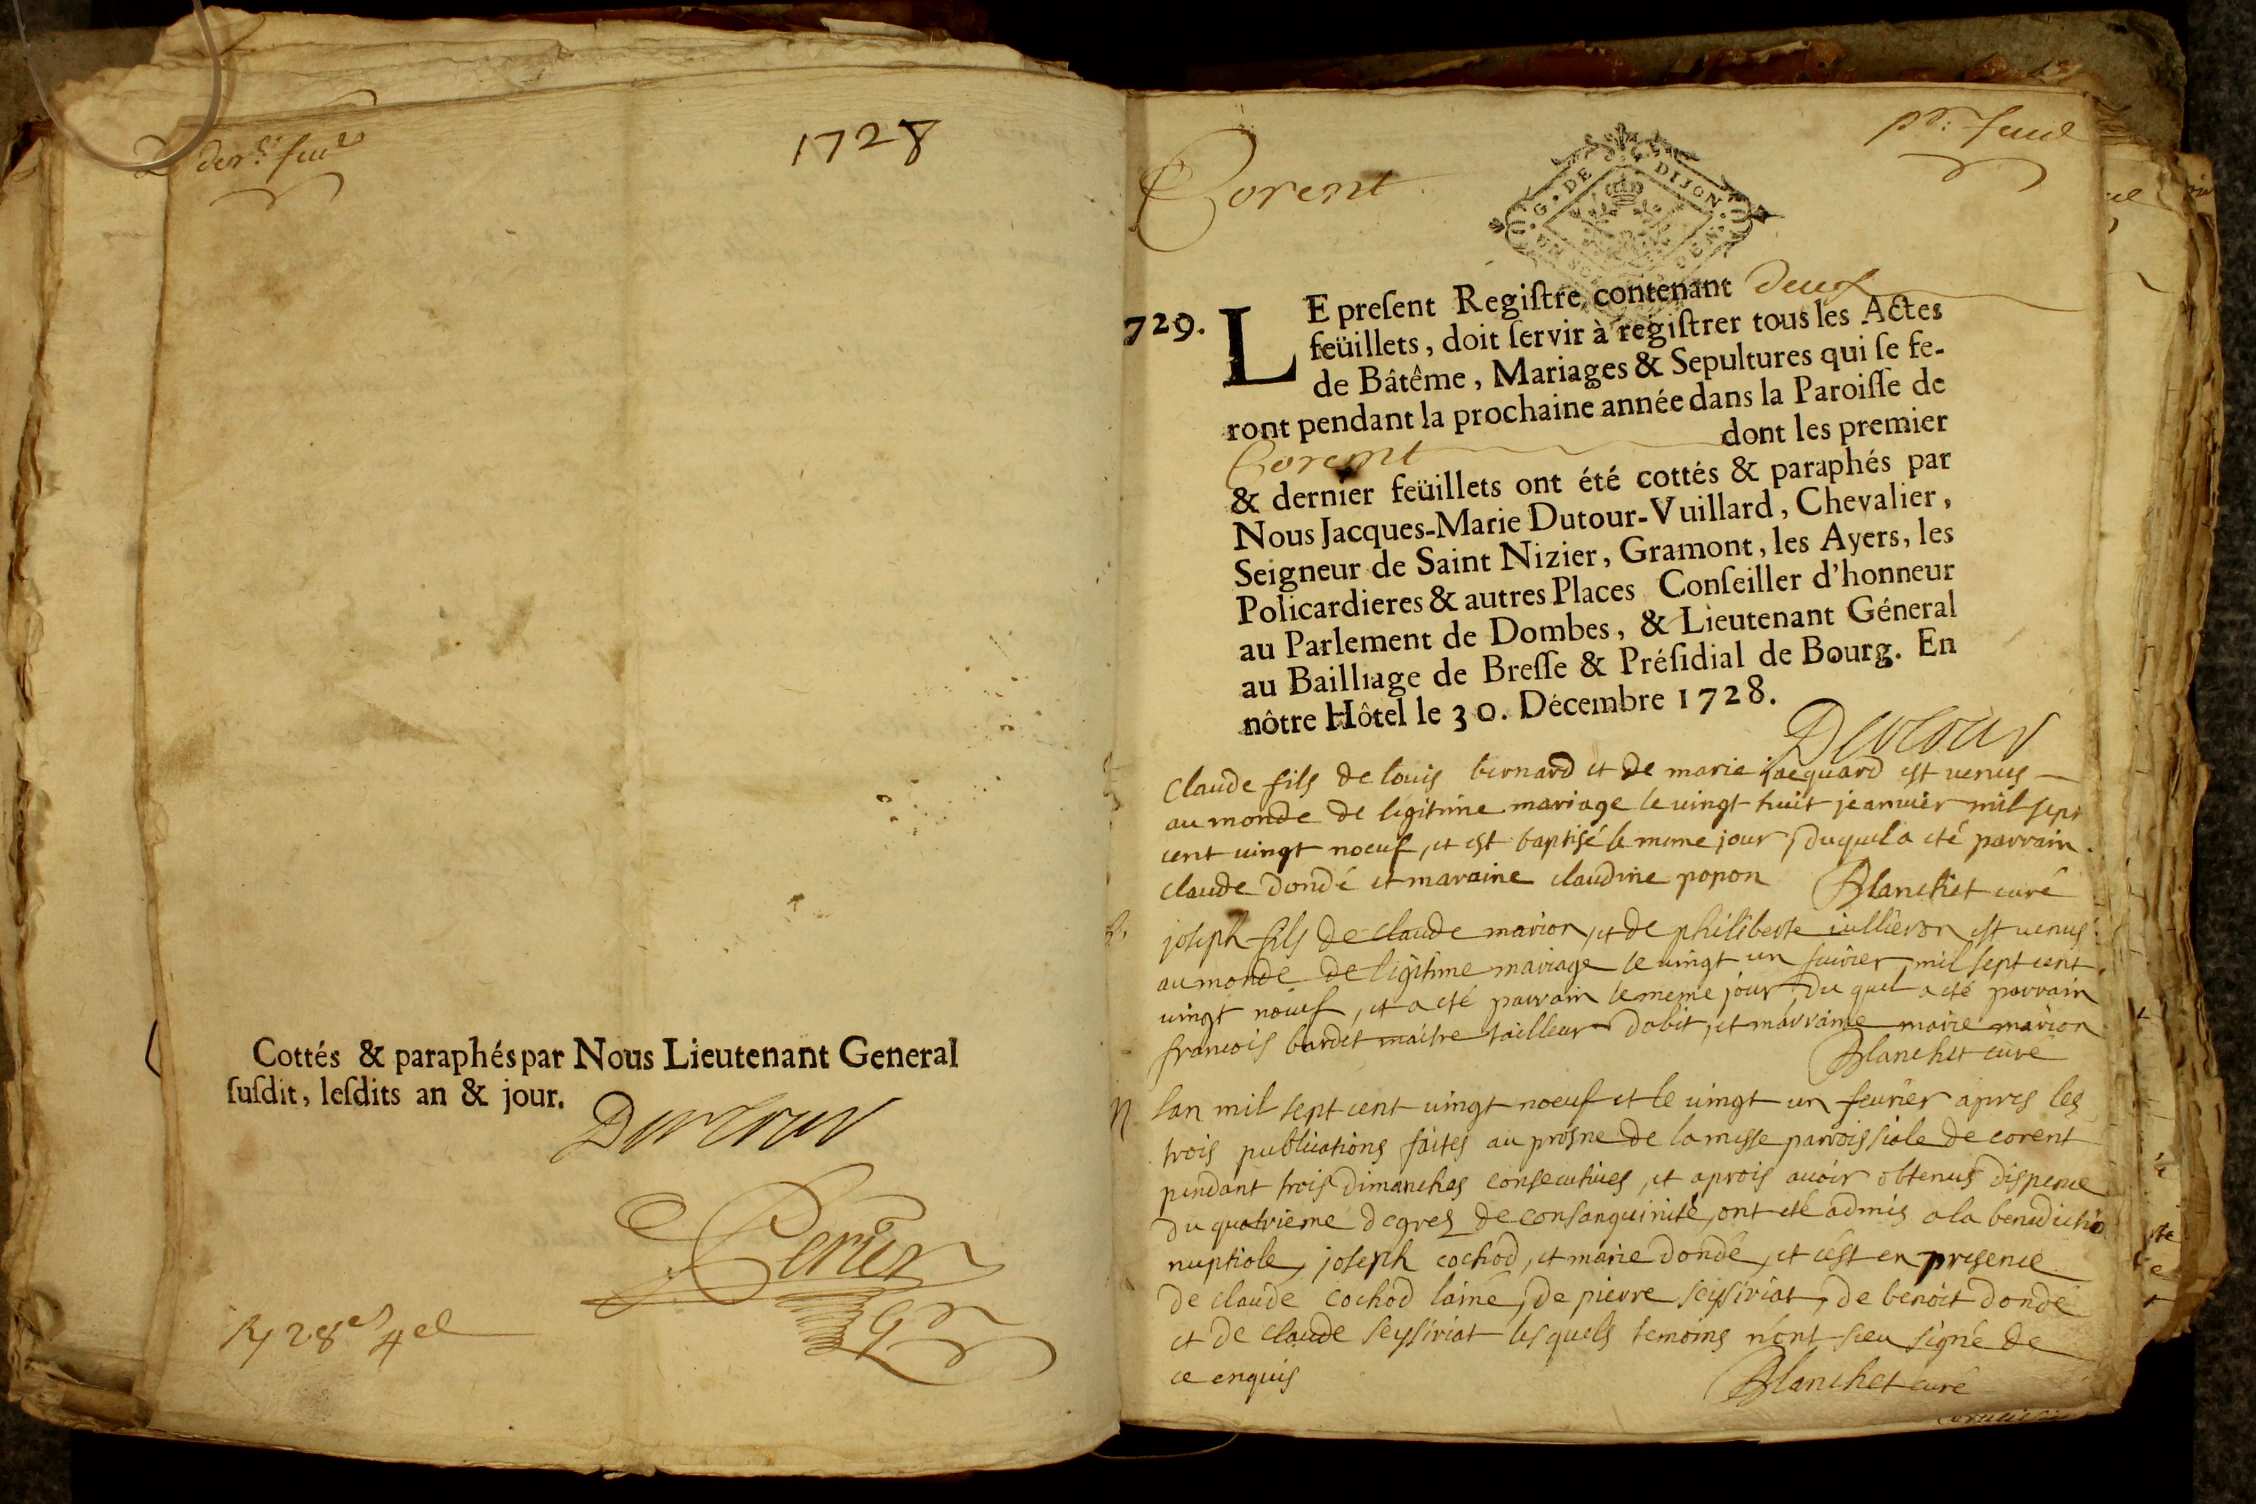 1728
Cottés & paraphés par Nous Lieutenant General
ſuſdit, leſdits an & jour.
Dutour
Perier
Corent
pr. feuil
G. DE DIJON
729.
LE preſent Regiſtre contenant Deux
feüillets, doit ſervir à regiſtrer tous les Actes
de Bâtême, Mariages & Sepultures qui ſe fe-
ront pendant la prochaine année dans la Paroiſſe de
Corent dont les premier
& dernier feüillets ont été cottés & paraphés par
Nous Jacques-Marie Dutour-Vuillard, Chevalier,
Seigneur de Saint Nizier, Gramont, les Ayers, les
Policardieres & autres Places Conſeiller d'honneur
au Parlement de Dombes, & Lieutenant Géneral
au Bailliage de Breſſe & Préſidial de Bourg. En
nôtre Hôtel le 30. Décembre 1728.
Dutour
Claude fils de louis bernard et de marie jacquard est venus
au monde de legitime mariage le vingt huit jeanvier mil sept
cent vingt noeuf, et est baptisé le meme jour, duquel a eté parrain
claude dondé et maraine claudine popon Blanchet curé
joseph fils de claude marion, et de philiberte iullieron est venus
au monde de legitime mariage le vingt un fevrier mil sept cent
vingt noeuf, et a eté parrain le meme jour, du quel a eté parrain
francois bardet maitre tailleur dabit, et marraine marie marion
Blanchet curé
lan mil sept cent vingt noeuf et le vingt un fevrier apres les
trois publications faites au prosne de la messe parroissiale de corent
pendant trois dimanches consecutives, et aprois avoir obtenus dispence
du quatrieme degrez de consanguinité, ont eté admis a la benedictio
nuptiale, joseph cochod, et marie dondé, et cést en presence
de claude cochod lainé, de pierre seyssiriat, de benoit dondé
et de claude seyssiriat lesquels temoins n'ont sceu signé de
ce enquis
Blanchet curé